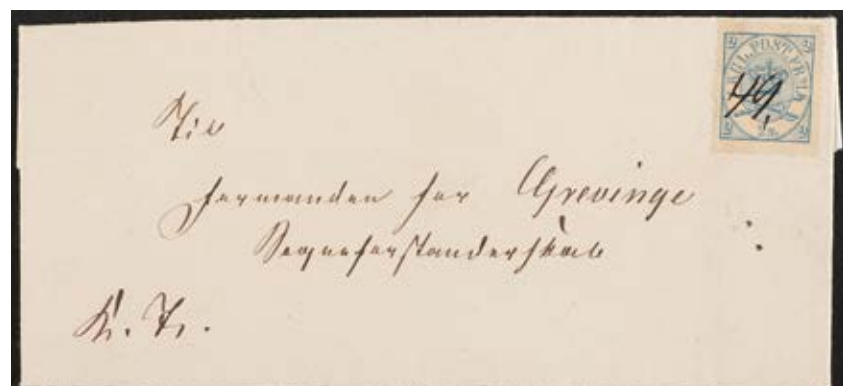 2 2
KGL. POST FRM.
49,
2 2
Til
Formanden for Grevinge
Sogneforstanderskab
K. T.